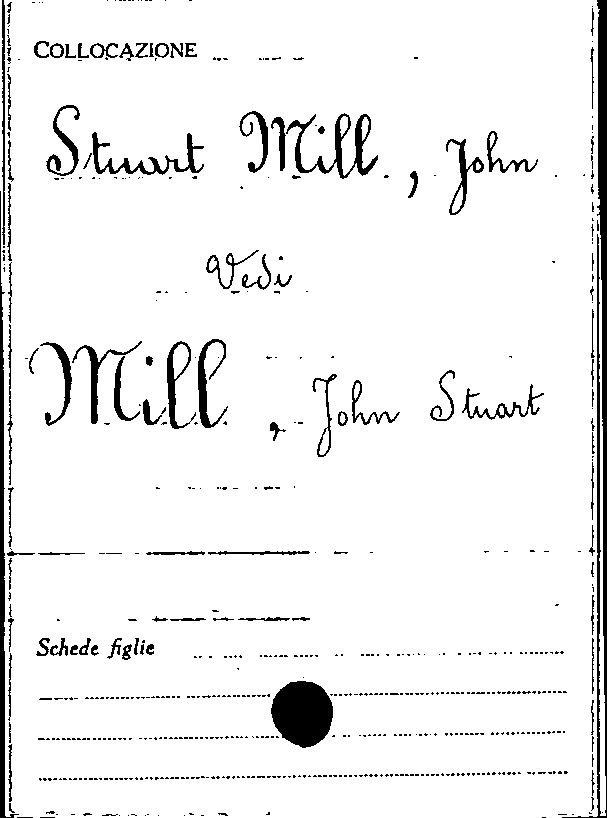 COLLOCAZIONE
Stuart Mill, John
Vedi
Mill, John Stuart
Schede figlie